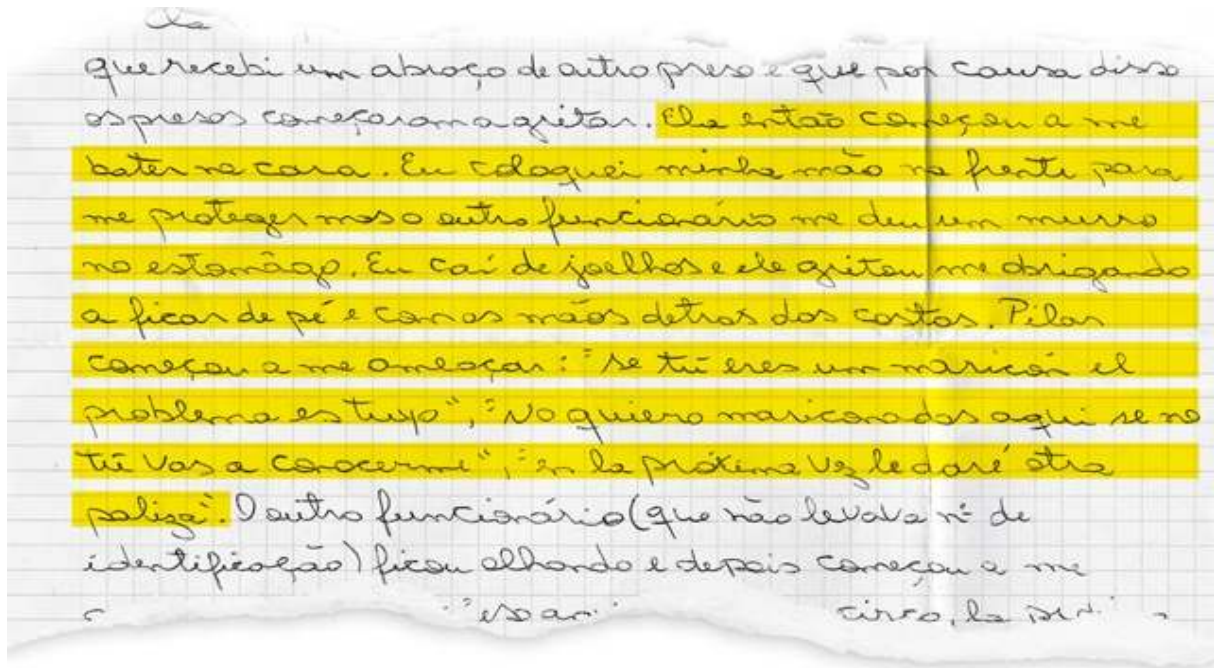 que recebi um abraço de outro preso e que por causa disso
os presos começaram a gritar. Ela então começou a me
bater na cara. Eu coloquei minha mão na frente para
me proteger mas o outro funcionário me deu um murro
no estomâgo. Eu caí de joelhos e ele gritou me obrigando
a ficar de pé e com as mãos detras das costas. Pilar
começou a me ameaçar: "se tú eres un maricón el
problema es tuyo", "No quiero mariconadas aqui se no
tú vas a conocerme", "en la próxima vez le daré otra
paliza". O outro funcionário (que não levava nº de
identificação) ficou olhando e depois começou a me
circo, la